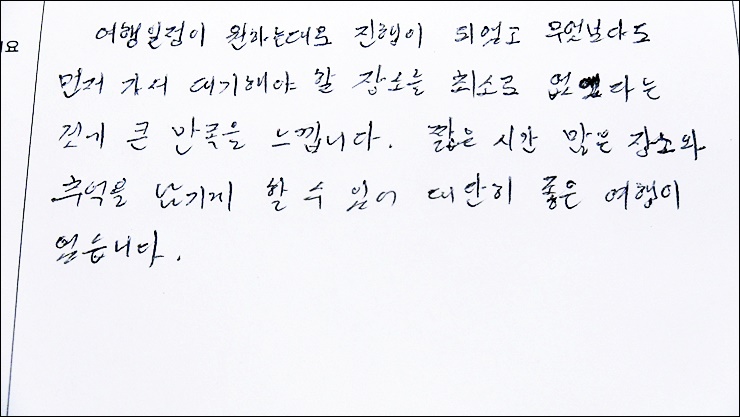 여행일정이 원하는대로 진행이 되었고 무엇보다도
먼저 가서 대기해야 할 장소를 최소로 없앴다는
것에 큰 만족을 느낍니다. 짧은 시간 많은 장소와
추억을 남기게 할 수 있어 대단히 좋은 여행이
었습니다.